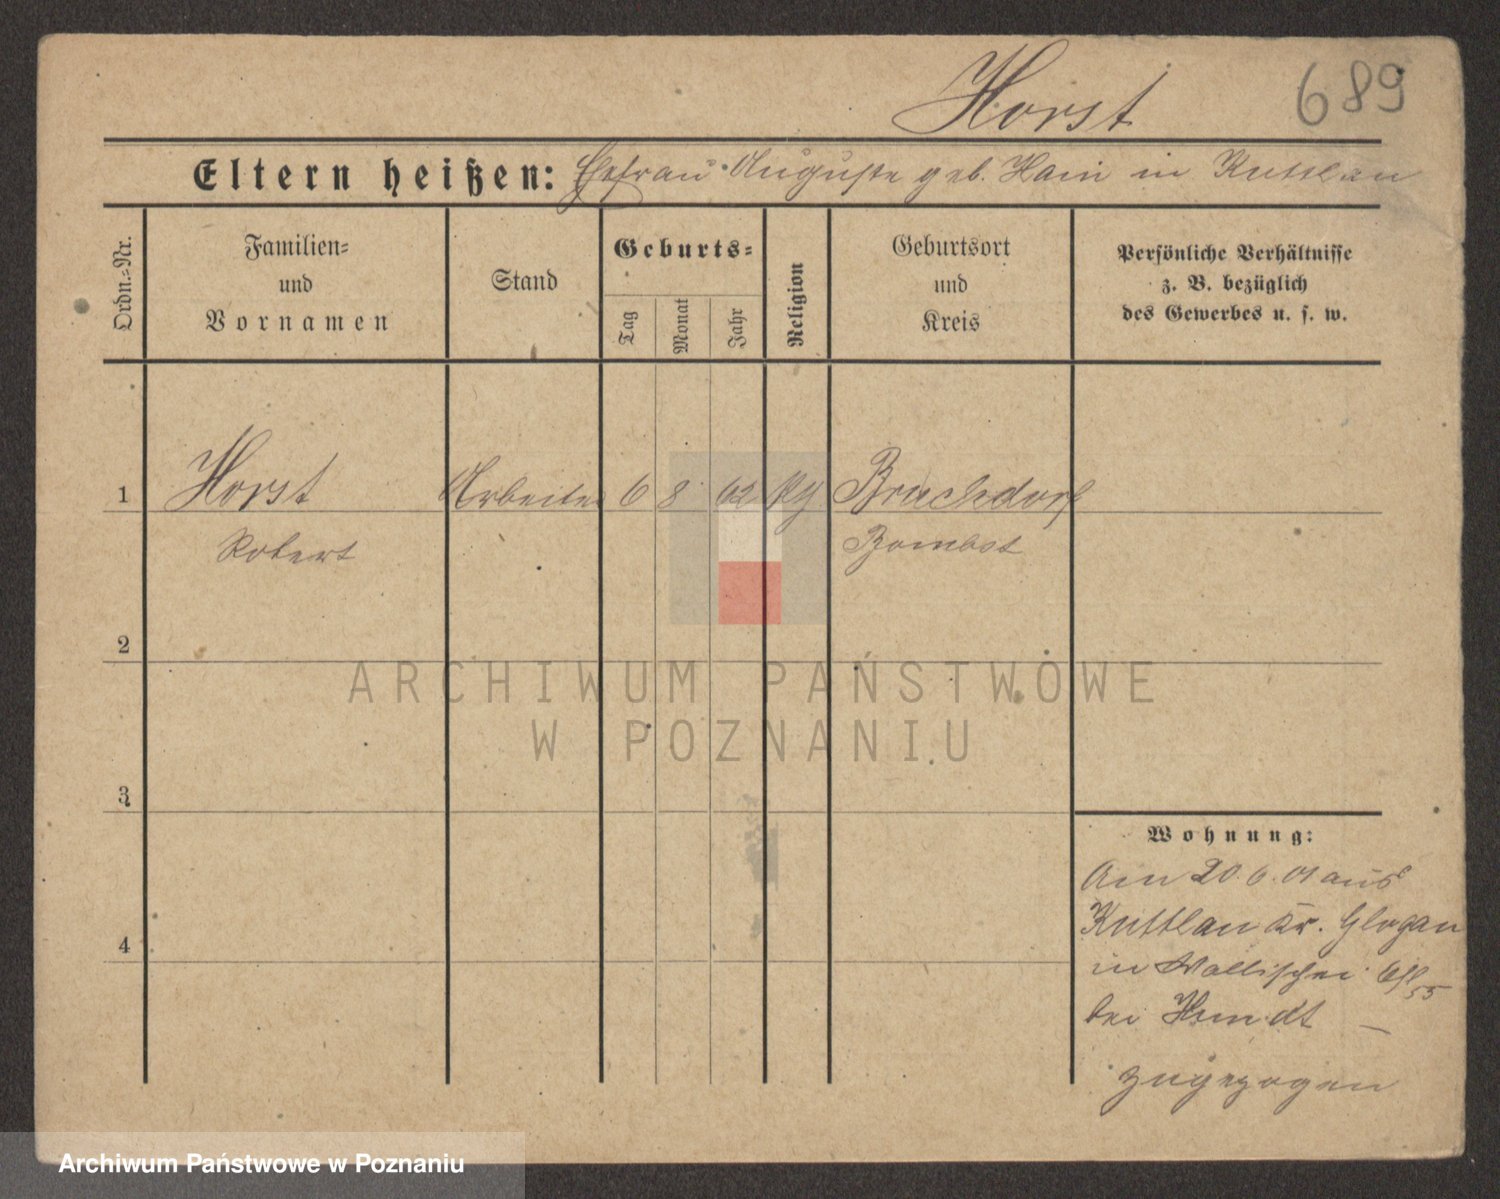 Horst 689
Eltern heißen: Ehefrau Auguste geb. Hain in Kuttlau
Ordn.=Nr.
Familien=
und
Vornamen
Stand
Geburts=
Tag
Monat
Jahr
Religion
Geburtsort
und
Kreis
Persönliche Verhältnisse
z. B. bezüglich
des Gewerbes u. s. w.
1 Horst Arbeiter 6 8 62 Bruchdorf
Robert Bombst
2
ARCHIWUM PAŃSTWOWE
W POZNANIU
3
Wohnung:
Am 20.6.01 aus
Kuttlau Kr. Glogau
4
in Wallischei
bei
zugezogen
Archiwum Państwowe w Poznaniu